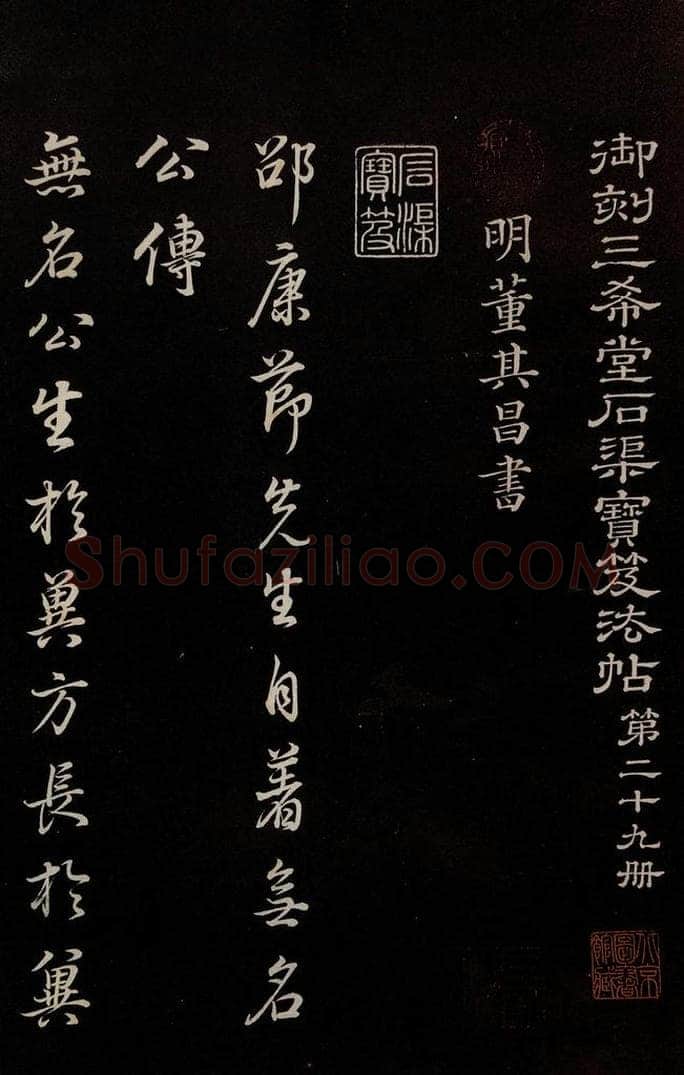 御刻三希堂石渠寶笈法帖第二十九册
北京圖書館藏
明董其昌書
石渠寶笈
邵康節先生自著無名
公傳
無名公生於冀方長於冀
Shufaziliao.COM